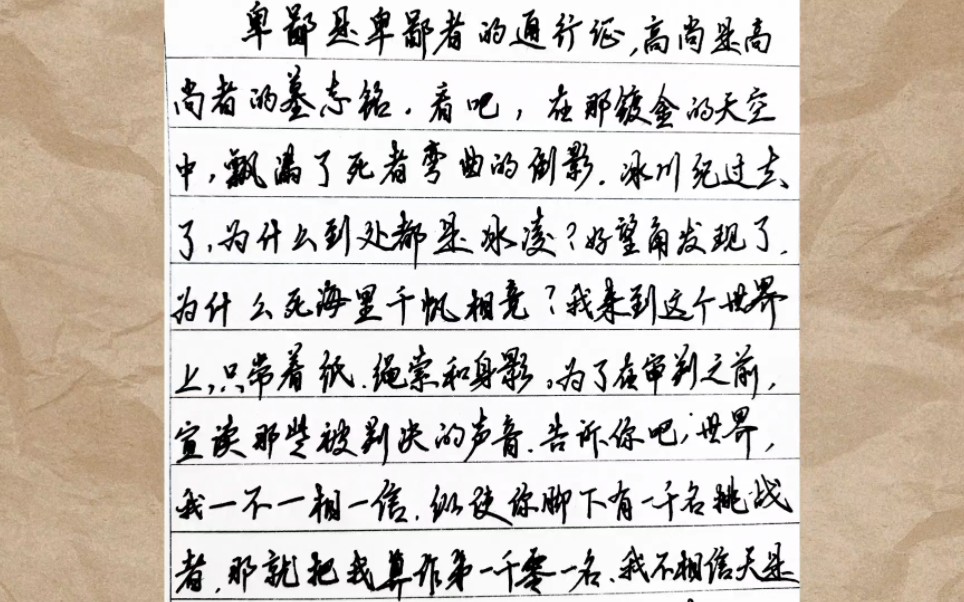 卑鄙是卑鄙者的通行证,高尚是高
尚者的墓志铭.看吧,在那镀金的天空
中,飘满了死者弯曲的倒影.冰川纪过去
了,为什么到处都是冰凌?好望角发现了.
为什么死海里千帆相竞?我来到这个世界
上,只带着纸.绳索和身影。为了在审判之前,
宣读那些被判决的声音.告诉你吧,世界,
我一不一相一信.纵使你脚下有一千名挑战
者,那就把我算作第一千零一名.我不相信天是